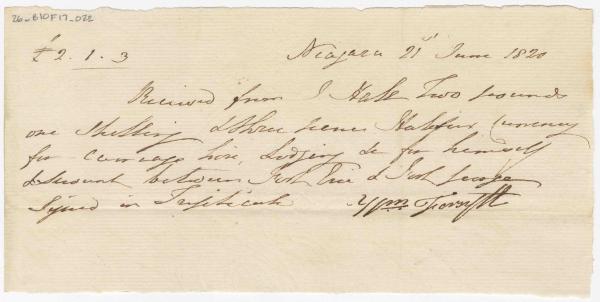 26-B10F17-022
£ 2. 1. 3 Niagara 21st June 1820
Received from J Hale Two pounds
one Shilling & three pence Halifax Currency
for carriage hire, Lodging &c for himself
& Servant between Fort Erie & Fort George
Signed in Triplicate Wm Forsyth